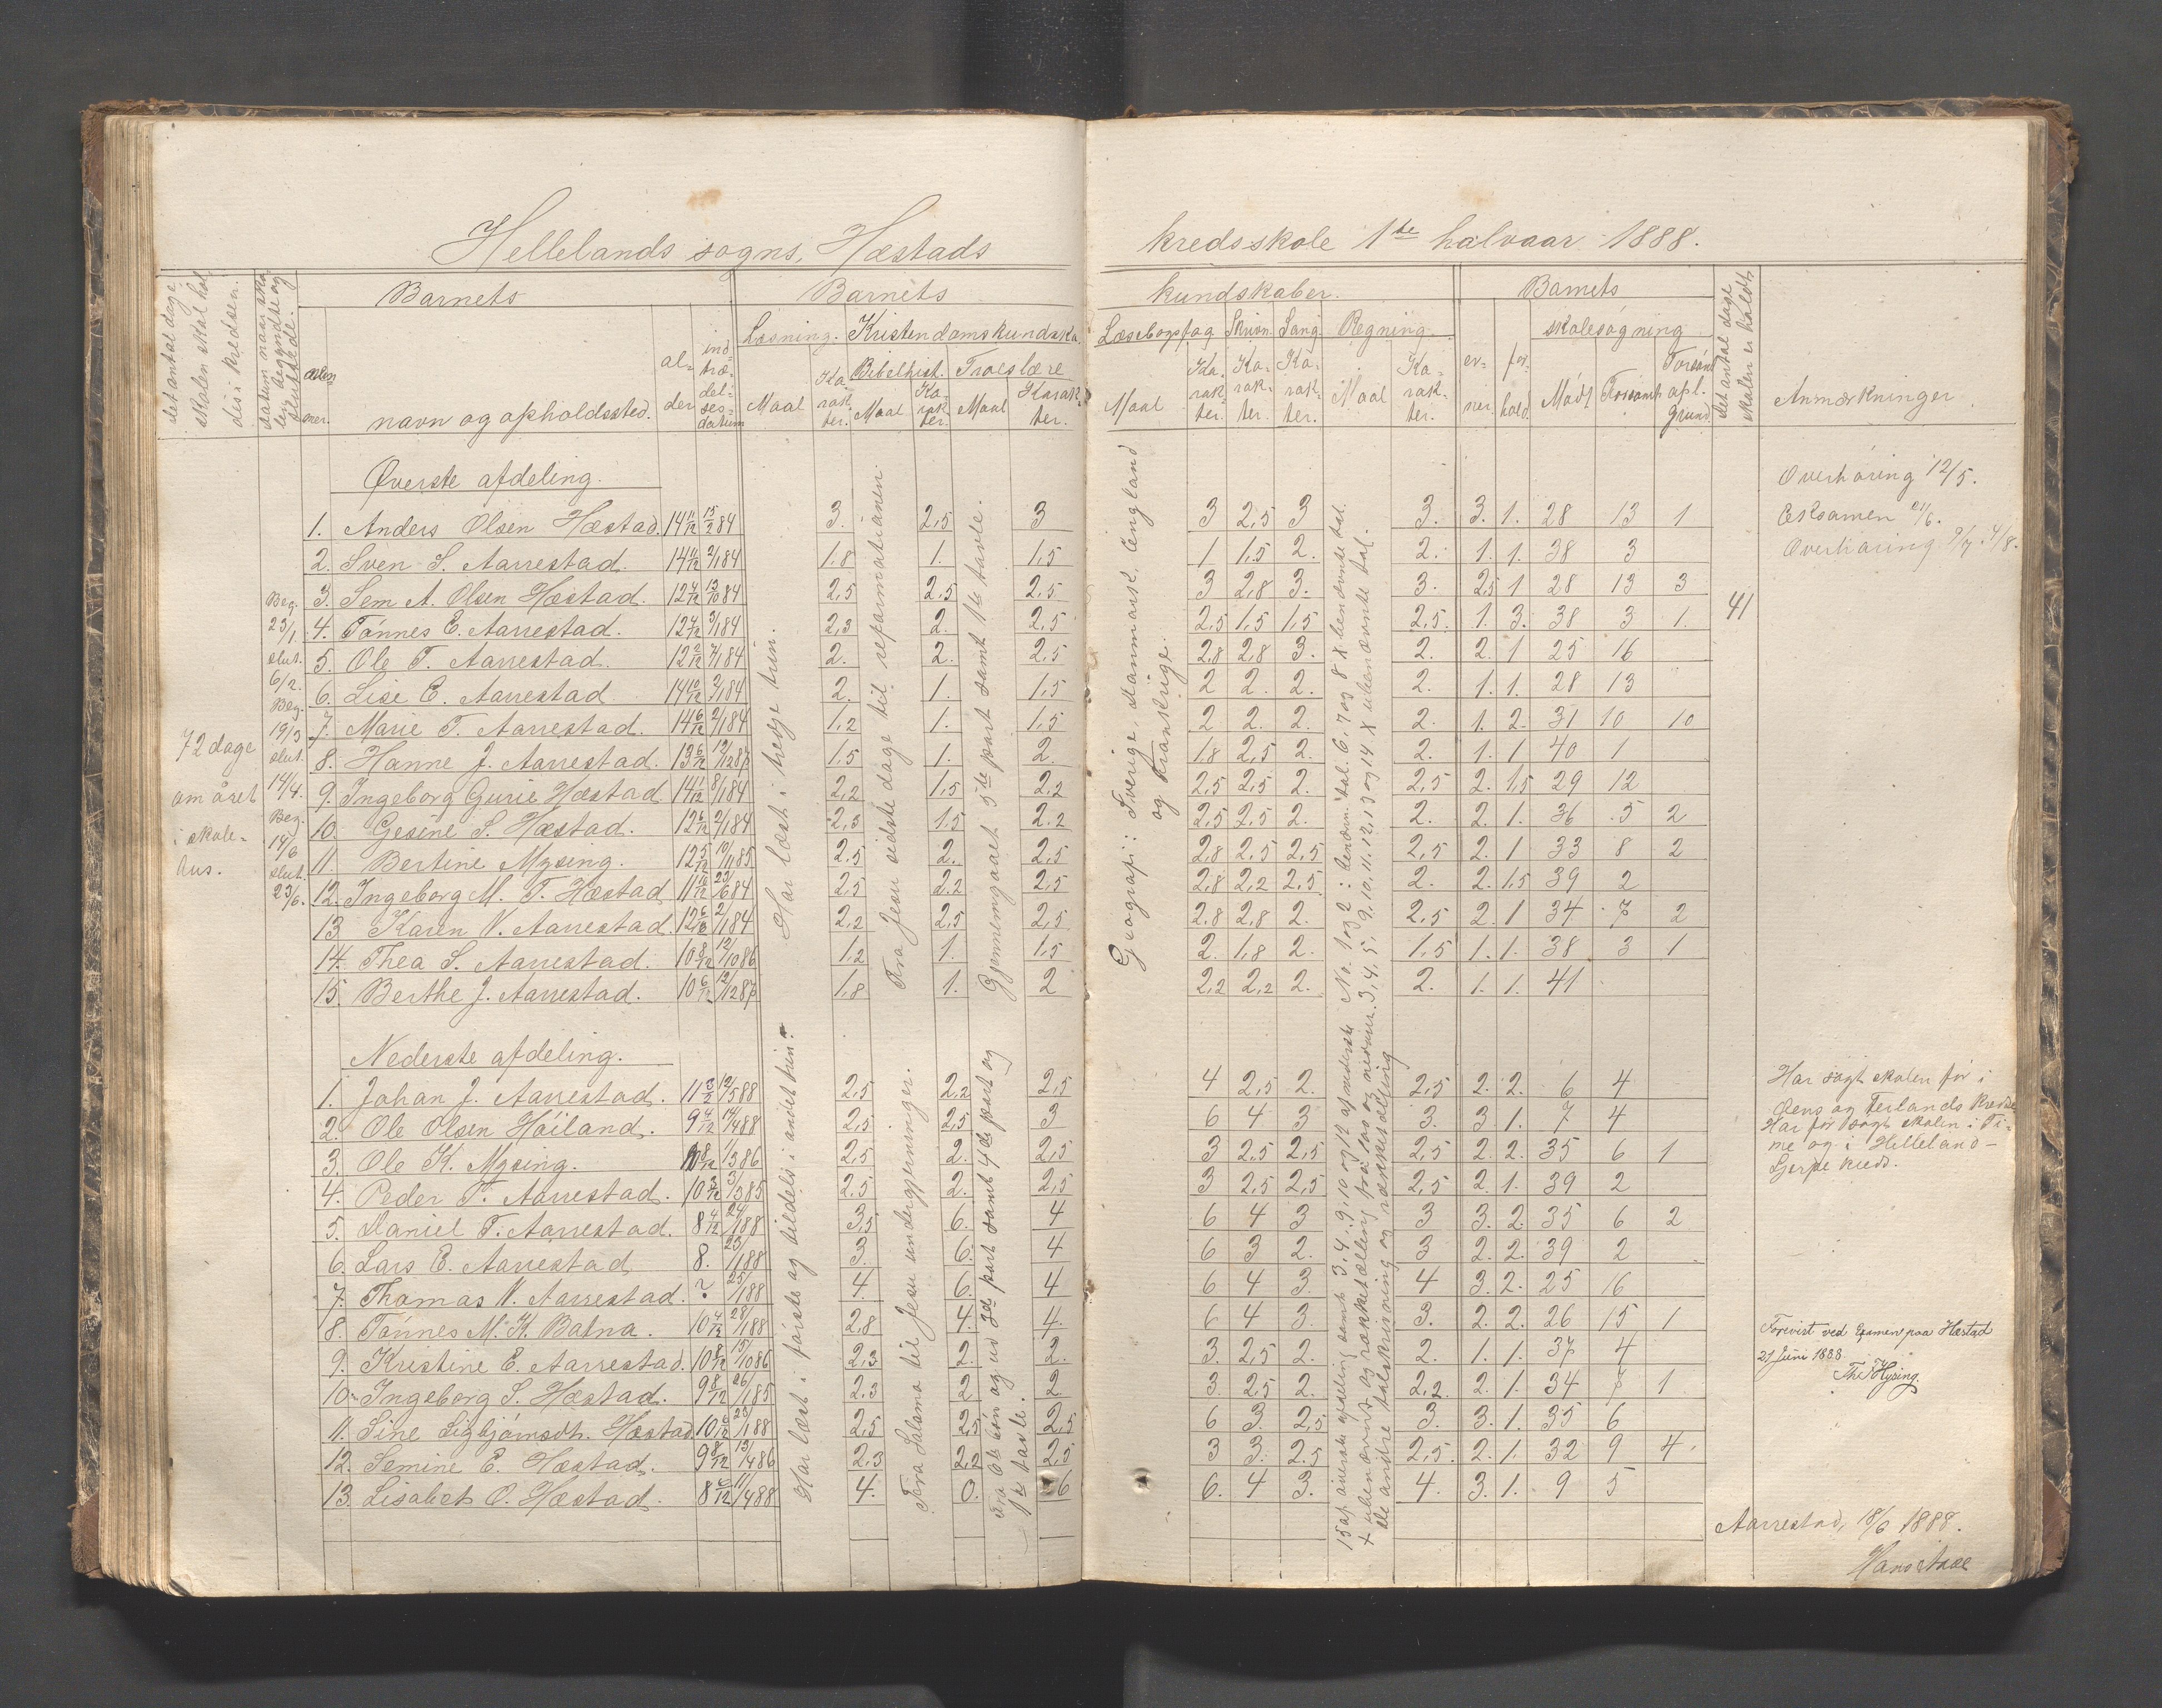 Hellelands sogns, Hæstads kredsskole 1ste halvaar 1888.
Det antal dage skolen skal holdes i kredsen.
Datum naar skolen begyndte og sluttede.
Barnets
navn og opholdssted.
alder
indtrædelsesdatum
Barnets kundskaber.
Læsning. Kristendomskundska.
Bibelhist. Troeslære
Maal Karakter. Maal Karakter. Maal Karakter.
Læsebogsfag Skrivn. Sang. Regning.
Maal Karakter. Karakter. Karakter. Maal Karakter.
Barnets
evner. forhold.
skolesøgning
Mødt Forsømt Forsømt af l. grund.
Det antal dage skolen er holdt.
Anmærkninger
72 dage om året i skolehus.
Beg. 23/1. slut. 6/2. Beg. 19/3 slut. 14/4. Beg. 14/6 slut. 23/6.
Øverste afdeling.
1. Anders Olsen Hæstad. 14 11/12 15/2 84 3. 2,5 3 3 2,5 3 3. 3. 1. 28 13 1
2. Sven S. Aarrestad. 14 4/12 2/1 84 1,8 1. 1,5 1 1,5 2. 2. 1. 1. 38 3
3. Sem A. Olsen Hæstad. 12 4/12 13/10 84 2,5 2,5 2,5 3 2,8 3. 3. 2,5 1 28 13 3
4. Tønnes E. Aarrestad. 12 4/12 3/1 84 2,3 2. 2,5 2,5 1,5 1,5 2,5. 1. 3. 38 3 1.
5. Ole T. Aarrestad. 12 2/12 7/1 84 2. 2. 2,5 2,8 2,8 3. 2. 2. 1 25 16
6. Lise E. Aarrestad 14 10/12 2/1 84 2. 1. 1,5 2 2. 2. 2. 1. 1. 28 13
7. Marie T. Aarrestad. 14 6/12 2/1 84 1,2 1. 1,5 2 2. 2. 2. 1. 2. 31 10 10
8. Hanne J. Aarrestad. 13 6/12 12/12 87 1,5 1. 2. 1,8 2,5 2. 2. 1. 1 40 1
9. Ingeborg Gurie Hæstad 14 1/12 8/1 84 2,2 1,5 2,2 2,5 2,5 2. 2,5 2. 1,5 29 12
10. Gesine S. Hæstad. 12 6/12 2/1 84 2,3 1,5 2.2 2,5 2,5 2. 2. 2. 1. 36 5 2
11. Bertine Mysing. 12 5/12 10/11 85 2,5 2. 2,5 2,8 2,5 2,5 2,5 2. 1 33 8 2
12. Ingeborg M. T. Hæstad 11 10/12 23/6 84 2,5 2.2 2,5 2,8 2,2 2,5 2. 2. 1,5 39 2
13 Karen V. Aarrestad. 12 6/12 2/1 84 2,2 2,5 2,5 2,8 2,8 2. 2,5 2. 1 34 7 2
14. Thea S. Aarrestad. 10 8/12 12/10 86 1,2 1. 1,5 2. 1,8 2. 1,5 1. 1. 38 3 1
15. Berthe J. Aarrestad. 10 6/12 12/12 87 1,8 1. 2 2,2 2,2 2. 2. 1. 1. 41
Har læst i tredje trin.
Fra Jesu sidste dage til reformationen
Gjennemgaaet 5te part samt 1ste tavle.
Geografi: Sverige, Danmark, England og Frankrige.
41
Overhøring 12/5.
Eksamen 21/6.
Overhøring 9/7. 4/8.
Nederste afdeling.
1. Johan J. Aarrestad. 11 3/12 12/5 88 2,5 2,2 2,5 4 2,5 2. 2,5 2. 2. 6 4
2. Ole Olsen Høiland. 9 4/12 14/4 88 2,5 2,5 3 6 4 3 3. 3 1. 7 4
3. Ole K. Mysing. 10 8/12 1/3 86 2,5 2. 2,5 3 2,5 2,5 2,5 2. 2. 35 6 1
4. Peder T. Aarrestad. 10 3/12 3/3 85 2,5 2. 2,5 3 2,5 2,5 2,5 2. 1. 39 2
5. Daniel T. Aarrestad. 8 4/12 24/1 88 3,5 6. 4 6 4 3 3 3. 2. 35 6 2
6. Lars E. Aarrestad 8. 23/1 88 3. 6. 4 6 3 2. 3 2. 2. 39 2
7. Thomas V. Aarrestad. ? 25/1 88 4. 6. 4 6 4 3. 4 3. 2. 25 16
8. Tønnes M. K. Botna. 10 4/12 28/1 88 2,8 4. 4. 6 4 3. 3. 2. 2. 26 15 1
9. Kristine E. Aarrestad. 10 8/12 15/10 86 2,3 2. 2. 3. 2,5 2. 2. 1. 1. 37 4
10. Ingeborg S. Hæstad. 9 8/12 26/1 85 2,3 2 2 3. 2,5 2. 2,2. 2. 1. 34 7 1
11. Sine Sigbjørnsdt. Hæstad. 10 6/12 23/1 88 2,5 2,5 2,5 6 3. 2,5 3. 3. 1. 35 6
12. Semine E. Hæstad. 9 8/12 13/4 86 2,3 2,2 2,5 3 3. 2.5 2,5. 2. 1. 32 9 4
13. Lisabet O. Hæstad. 8 6/12 11/4 88 4. 0. 6 6. 4 3. 4. 3. 1. 9 5
Har læst i første og tildels i andet trin.
Fra Salomo til Jesu undergjerninger.
Har søgt skolen før i
Øens og Terlands kredse
Har før søgt skolen i Ti-
me og i Helleland-
Gjerpe kreds.
Forevist ved Examen paa Hæstad
21 Juni 1888.
Th. Hysing.
Aarrestad, 18/6 1888.
Hans Aase